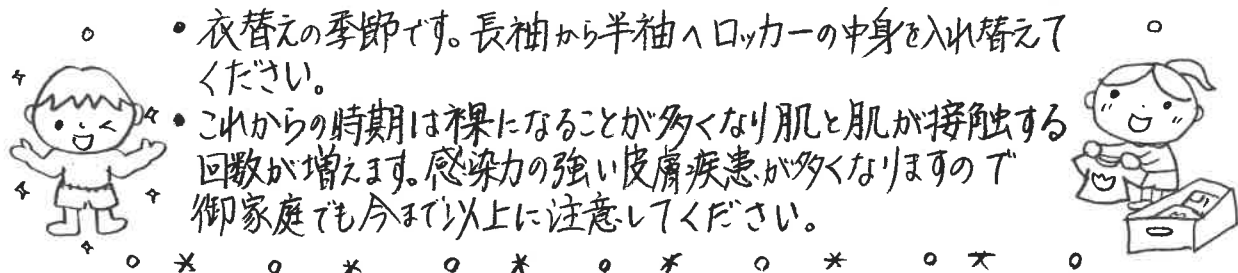 ・衣替えの季節です。長袖から半袖へロッカーの中身を入れ替えて
ください。
・これからの時期は裸になることが多くなり肌と肌が接触する
回数が増えます。感染力の強い皮膚疾患が多くなりますので
御家庭でも今まで以上に注意してください。